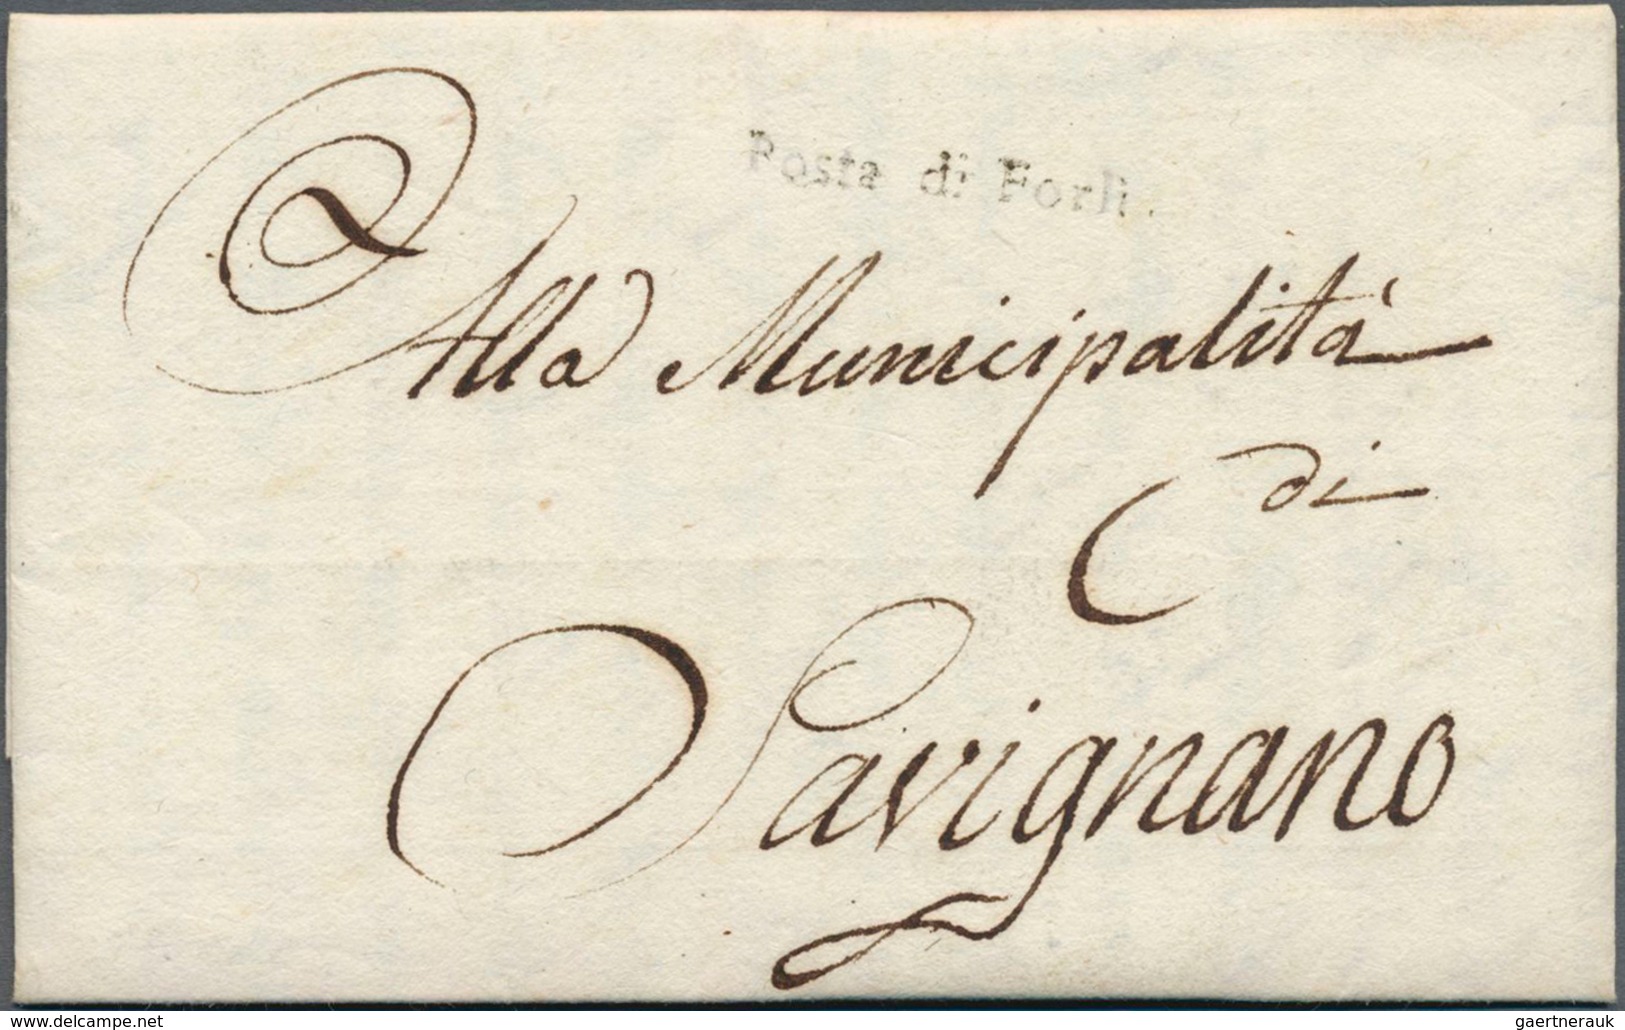 Posta di Forli.
Alla Municipalità
di
Savignano
www.delcampe.net
gaertnerauk